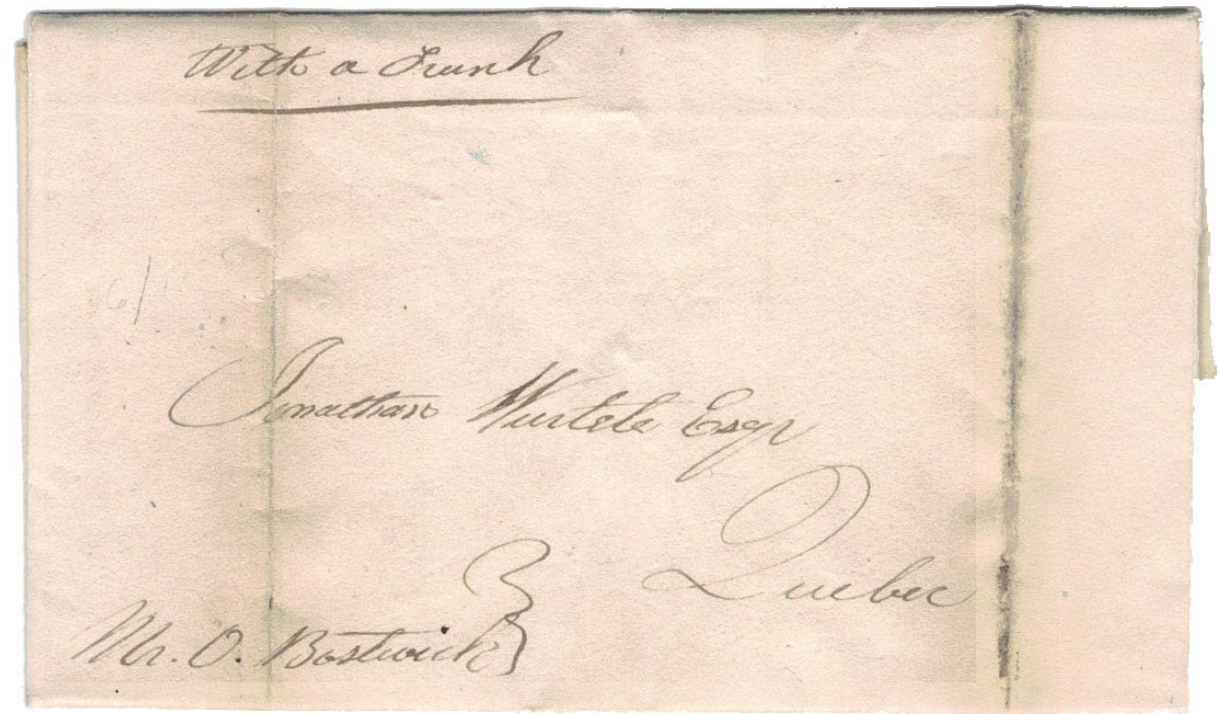 With a Trunk
6/
Jonathan Wurtele Esqr
Quebec
Mr. O. Bostwick